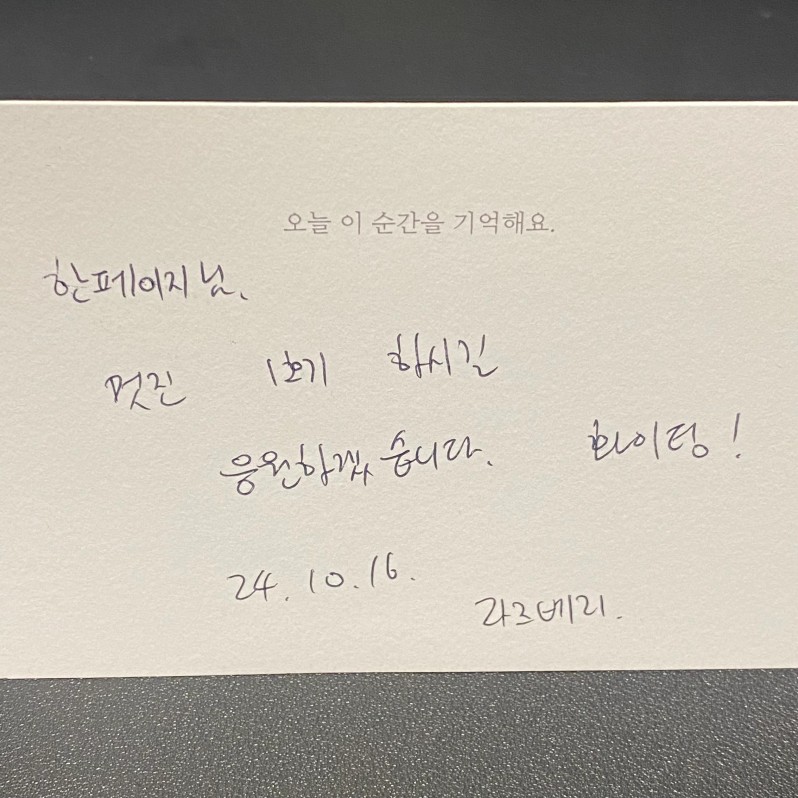 오늘 이 순간을 기억해요.
한페이지님.
멋진 1호기 하시길
응원하겠습니다. 화이팅!
24.10.16.
라즈베리.